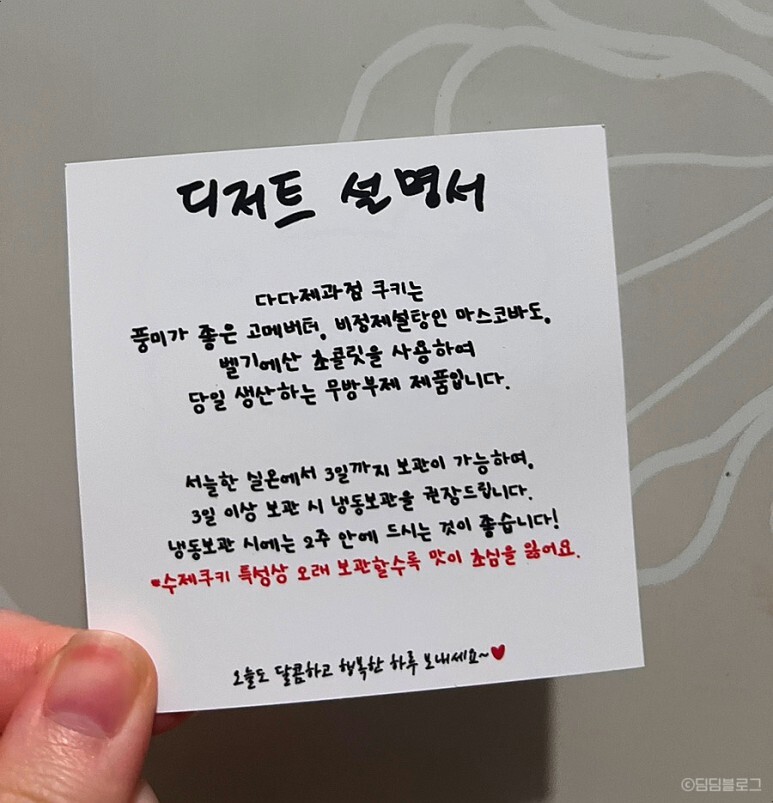 디저트 설명서
다다제과점 쿠키는
풍미가 좋은 고메버터, 비정제설탕인 마스코바도,
벨기에산 초콜릿을 사용하여
당일 생산하는 무방부제 제품입니다.
서늘한 실온에서 3일까지 보관이 가능하며,
3일 이상 보관 시 냉동보관을 권장드립니다.
냉동보관 시에는 2주 안에 드시는 것이 좋습니다!
*수제쿠키 특성상 오래 보관할수록 맛이 초심을 잃어요.
오늘도 달콤하고 행복한 하루 보내세요~♥
©딤딤블로그